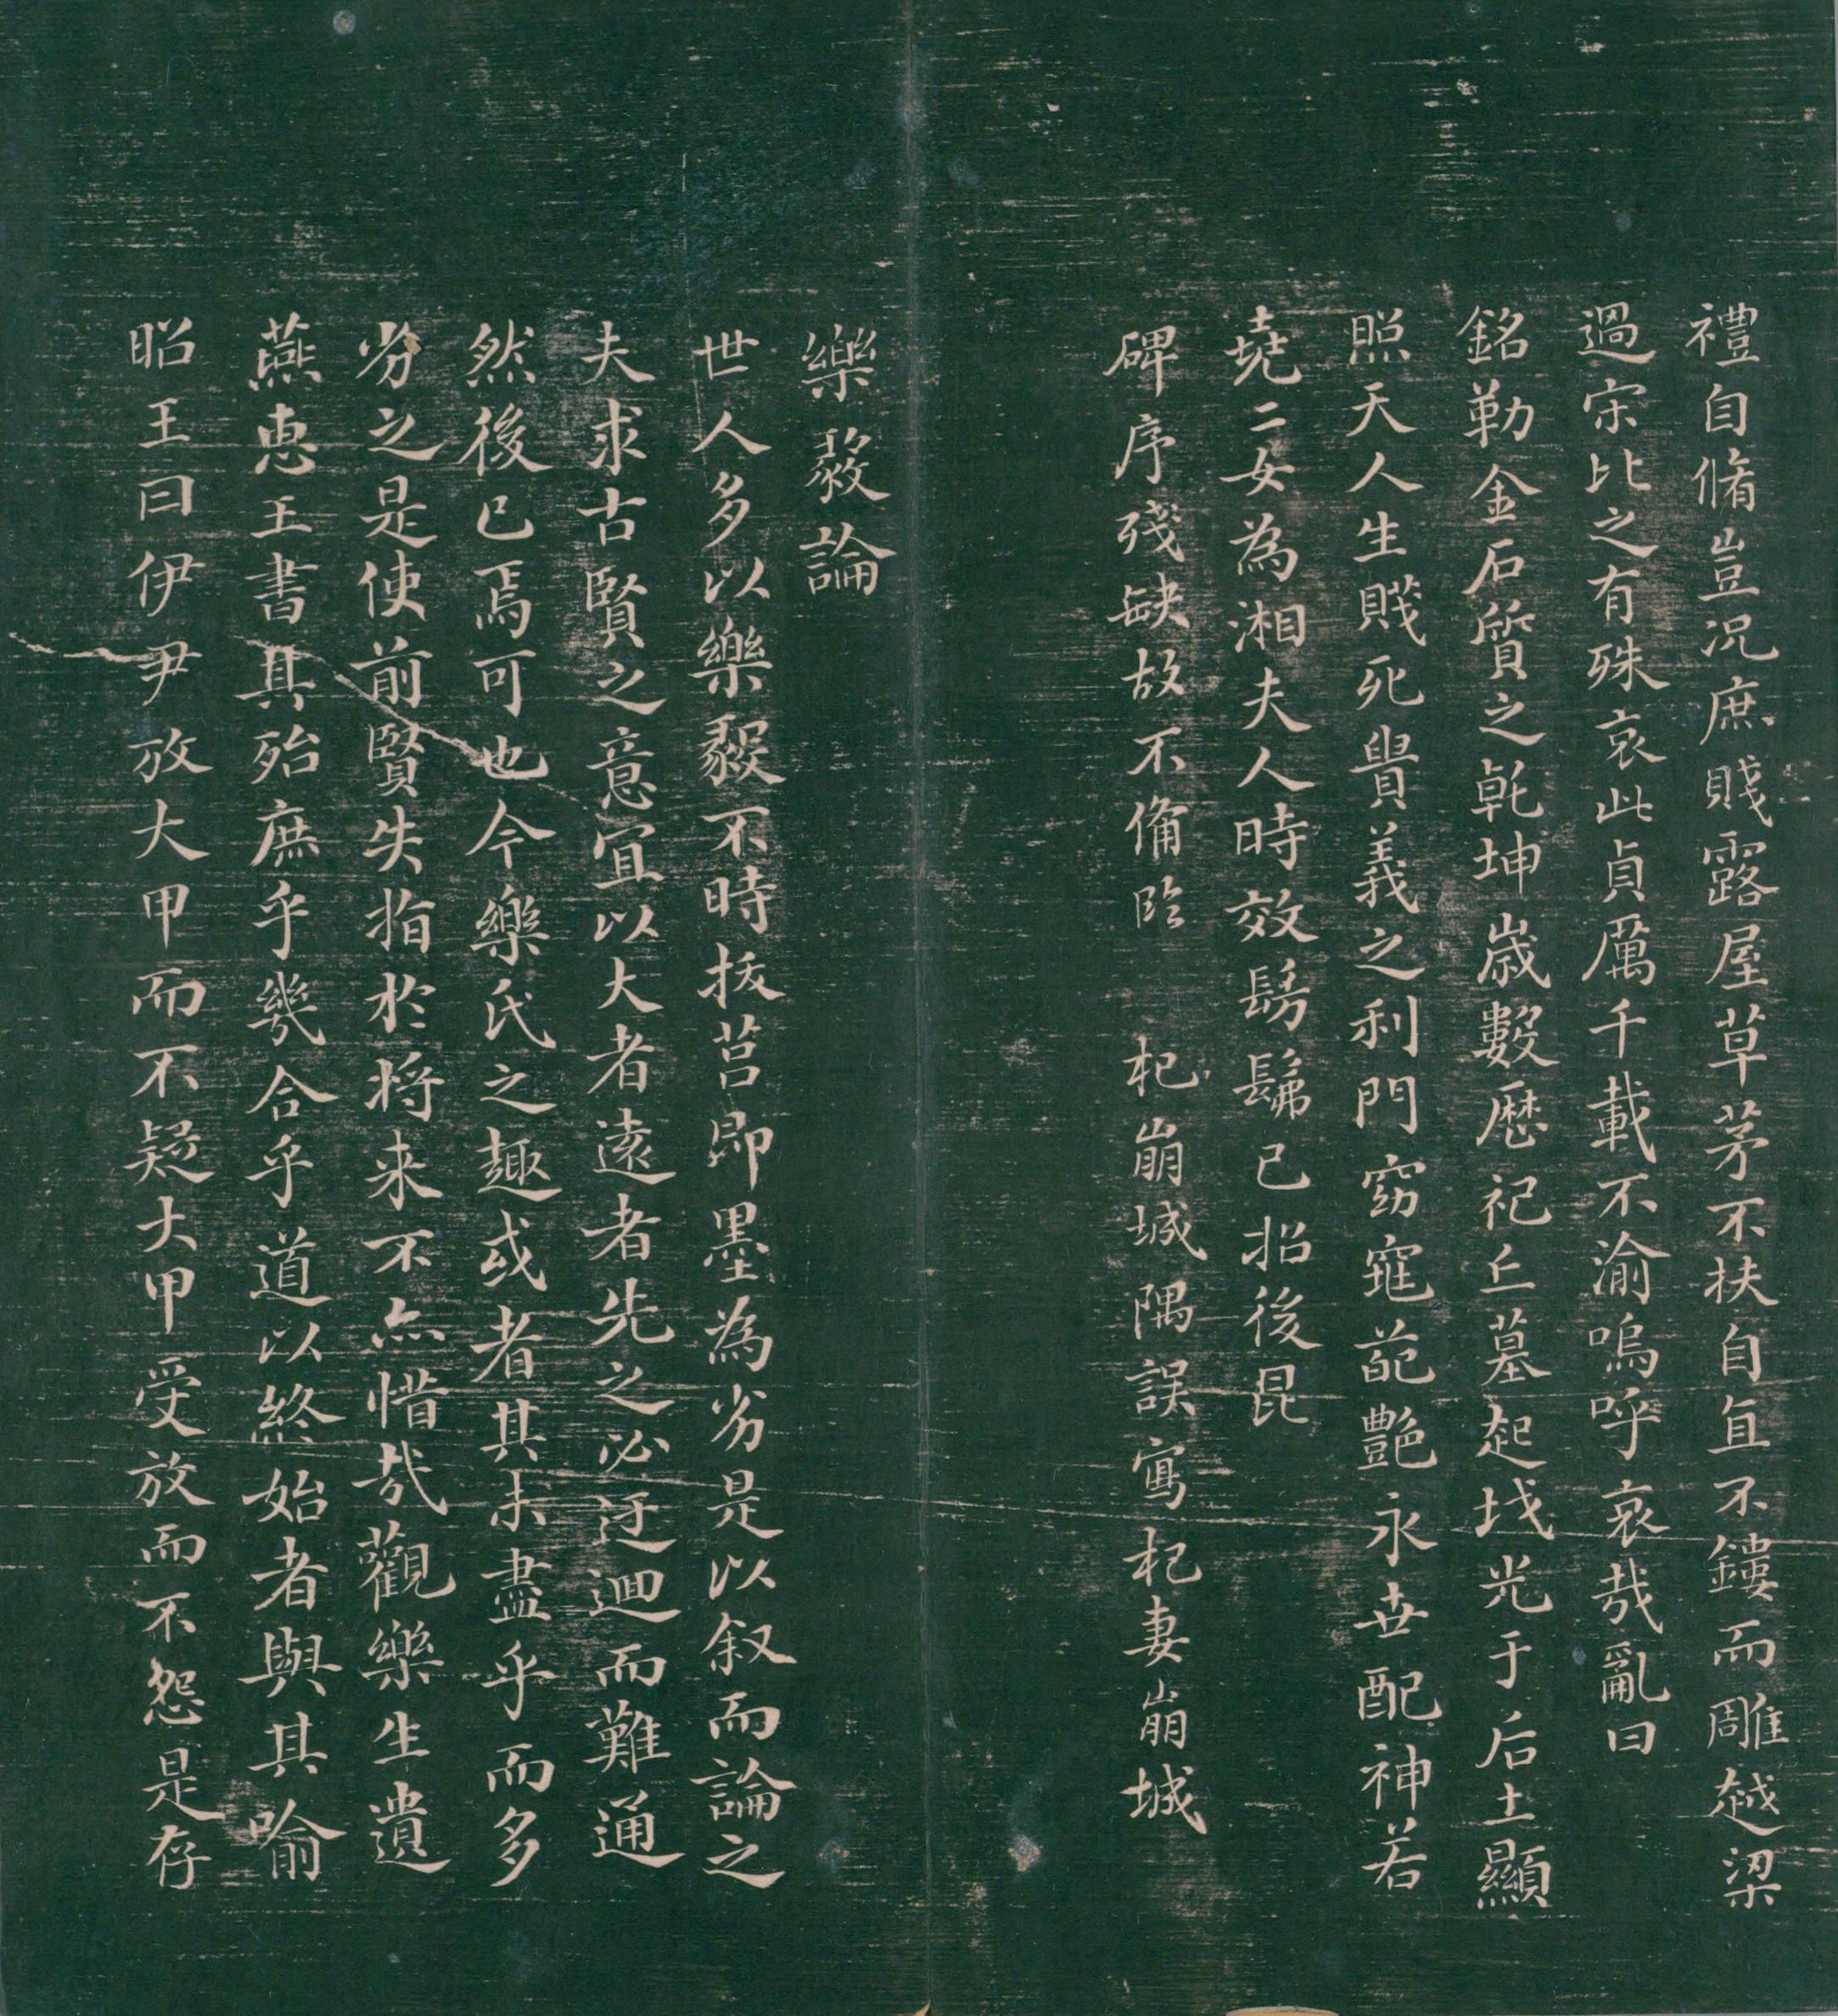 禮自脩豈況庶賤露屋草茅不扶自直不鏤而雕越梁
過宋比之有殊哀此貞厲千載不渝嗚呼哀哉亂曰
銘勒金石質之乹坤歲數歷祀丘墓起墳光于后土顯
照天人生賤死貴義之利門
堯二女為湘夫人時效髣髴已招後昆
碑序殘缺故不備臨 杞崩城隅誤寫杞妻崩城
樂毅論
世人多以樂毅不時拔莒即墨為劣是以叙而論之
夫求古賢之意宜以大者遠者先之必迂迴而難通
然後已焉可也今樂氏之趣或者其未盡乎而多
劣之是使前賢失指於将来不亦惜哉觀樂生遺
燕惠王書其殆庶乎㡬合乎道以終始者與其喻
昭王曰伊尹放大甲而不疑大甲受放而不怨是存